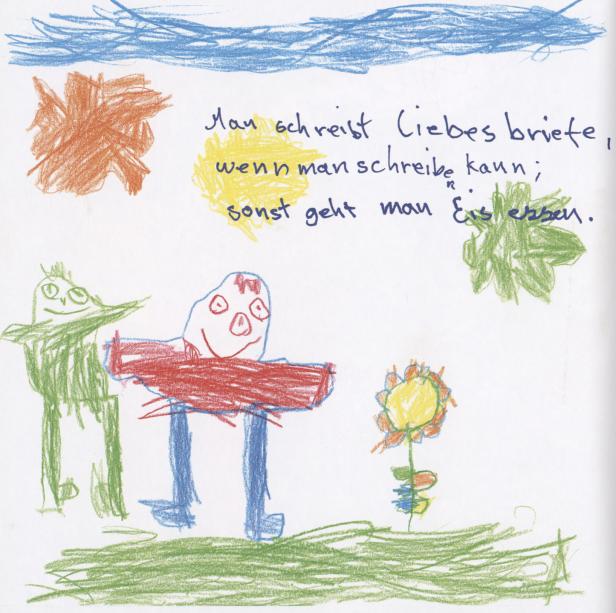 Man schreibt Liebesbriefe,
wenn man schreiben kann;
sonst geht man Eis essen.